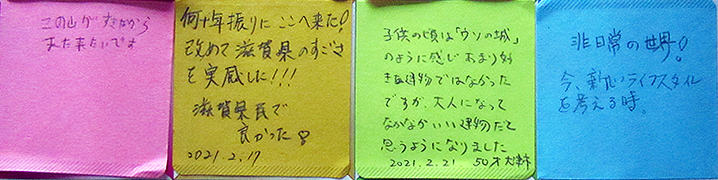 この山が すきだから
また来たいです
何十年振りにここへ来た!
改めて滋賀県のすごさ
を実感した!!!
滋賀県民で
良かった!
2021.2.17
子供の頃は「ウソの城」
のように感じ あまり好
きな建物ではなかった
ですが、大人になって
なかなかいい建物だと
思うようになりました
2021.2.21 50才 大津市
非日常の世界!
今、新しいライフスタイル
を考える時。